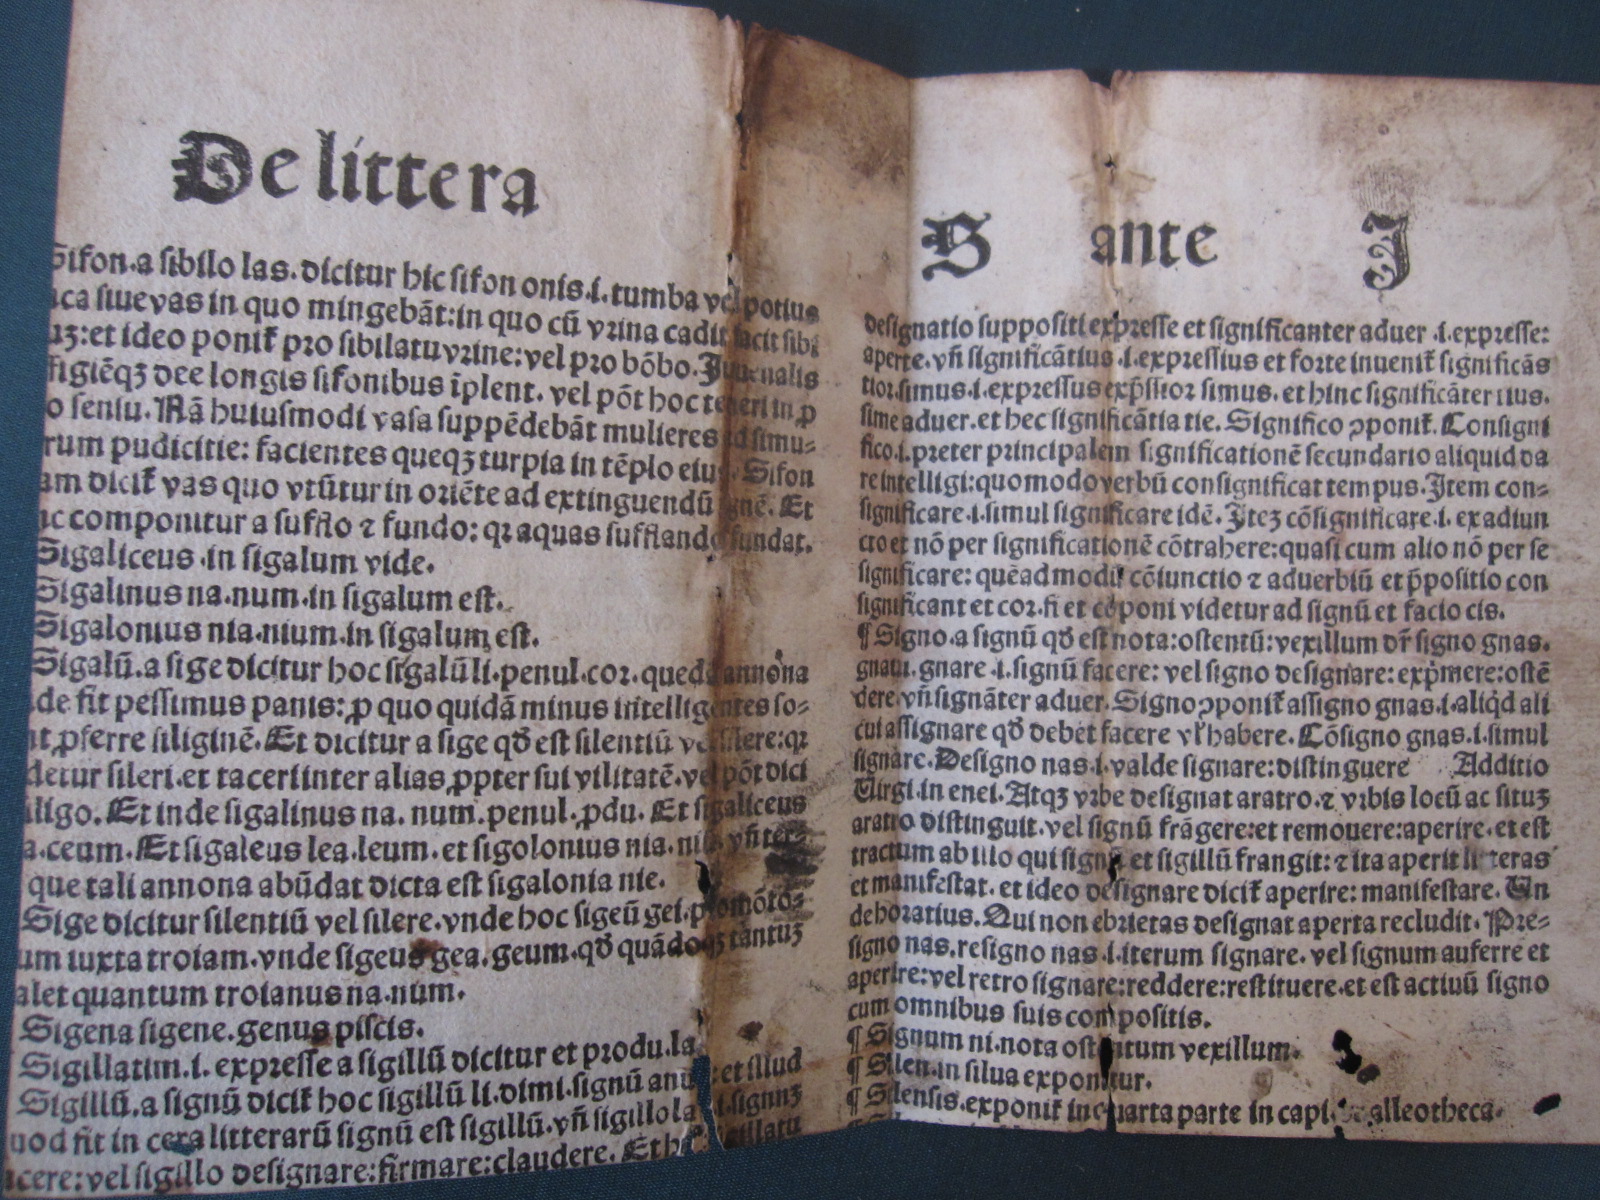 De littera
Sifon.a sibilo las.dicitur hic sifon onis.i.tumba vel potius
ica siue vas in quo mingebãt:in quo cũ vrina cadit facit sibi
uʒ:et ideo ponit᷑ pro sibilatu vrine:vel pro bõbo.Juuenalis
ffigiẽqʒ dee longis sifonibus ĩplent. vel põt hoc teneri in ꝓ
o seniu. Nã huiusmodi vasa suppẽdebãt mulieres ad simu-
rum pudicitie: facientes queqʒ turpia in tẽplo eius. Sifon
am dicit᷑ vas quo vtũtur in oriẽte ad extinguendũ ignẽ. Et
ic componitur a sufflo ⁊ fundo: qꝛ aquas sufflando fundat.
Sigaliceus.in sigalum vide.
Sigalinus na.num.in sigalum est.
Sigalonius nia.nium.in sigalum est.
Sigalũ.a sige dicitur hoc sigalũ li.penul.cor. quedã annona
de fit pessimus panis: ꝓ quo quidã minus intelligentes so-
nt ꝓferre siliginẽ. Et dicitur a sige qđ est silentiũ vel silere:qꝛ
detur sileri.et taceri inter alias ꝓpter sui vilitatẽ.vel põt dici
iligo. Et inde sigalinus na. num. penul. ꝓdu. Et sigaliceus
a.ceum. Et sigaleus lea.leum.et sigolonius nia. vñ ter-
que tali annona abũdat dicta est sigalonia nie.
Sige dicitur silentiũ vel silere.vnde hoc sigeũ gei.promõto-
um iuxta troiam.vnde sigeus gea.geum.qđ quãdoqʒ tantuʒ
alet quantum troianus na.num.
Sigena sigene.genus piscis.
Sigillatim.i. expresse a sigillũ dicitur et produ.la
Sigillũ.a signũ dicit᷑ hoc sigillũ li.dimi.signũ :et illud
uod fit in cera litterarũ signũ est sigillũ.vñ sigillo la .i.signuʒ
acere:vel sigillo designare:firmare:claudere. Et sigillatu
S ante J
designatio suppositi expresse et significanter aduer .i.expresse:
aperte.vñ significãtius.i.expressius et forte inuenit᷑ significãs
tior.simus.i.expressus exp̃ssior simus.et hinc significãter tius.
sime aduer.et hec significãtia tie. Significo ꝯponit᷑. Consigni
fico.i.preter principalem significationẽ secundario aliquid da
re intelligi:quomodo verbũ consignificat tempus.Item con-
significare.i.simul significare idẽ. Iteʒ cõsignificare.i. ex adiun
cto et nõ per significationẽ cõtrahere:quasi cum alio nõ per se
significare: quẽadmodũ cõiunctio ⁊ aduerbiũ et p̃positio con
significant et cor.fi et cõponi videtur ad signũ et facio cis.
¶ Signo.a signũ qđ est nota:ostentũ:vexillum dr̃ signo gnas.
gnaui.gnare.i.signũ facere: vel signo designare: exp̃mere:ostẽ
dere.vñ signãter aduer. Signo ꝯponit᷑ assigno gnas.i.aliq̃d ali
cui assignare qđ debet facere vꝉ habere. Cõsigno gnas.i.simul
signare.Designo nas.i.valde signare:distinguere Additio
Uirgi.in enei.Atqʒ vrbe designat aratro.⁊ vrbis locũ ac situʒ
aratio distinguit.vel signũ frãgere:et remouere:aperire.et est
tractum ab illo qui signũ et sigillũ frangit: ⁊ ita aperit litteras
et manifestat.et ideo designare dicit᷑ aperire: manifestare. Un
de horatius.Qui non ebrietas designat aperta recludit. Pre-
signo nas.resigno nas.i.iterum signare. vel signum auferre et
aperire:vel retro signare:reddere:restituere.et est actiuũ signo
cum omnibus suis compositis.
¶ Signum ni.nota ostentum vexillum.
¶ Silen.in silua exponitur.
¶ Silensis.exponit᷑ in quarta parte in capi. alleotheca.